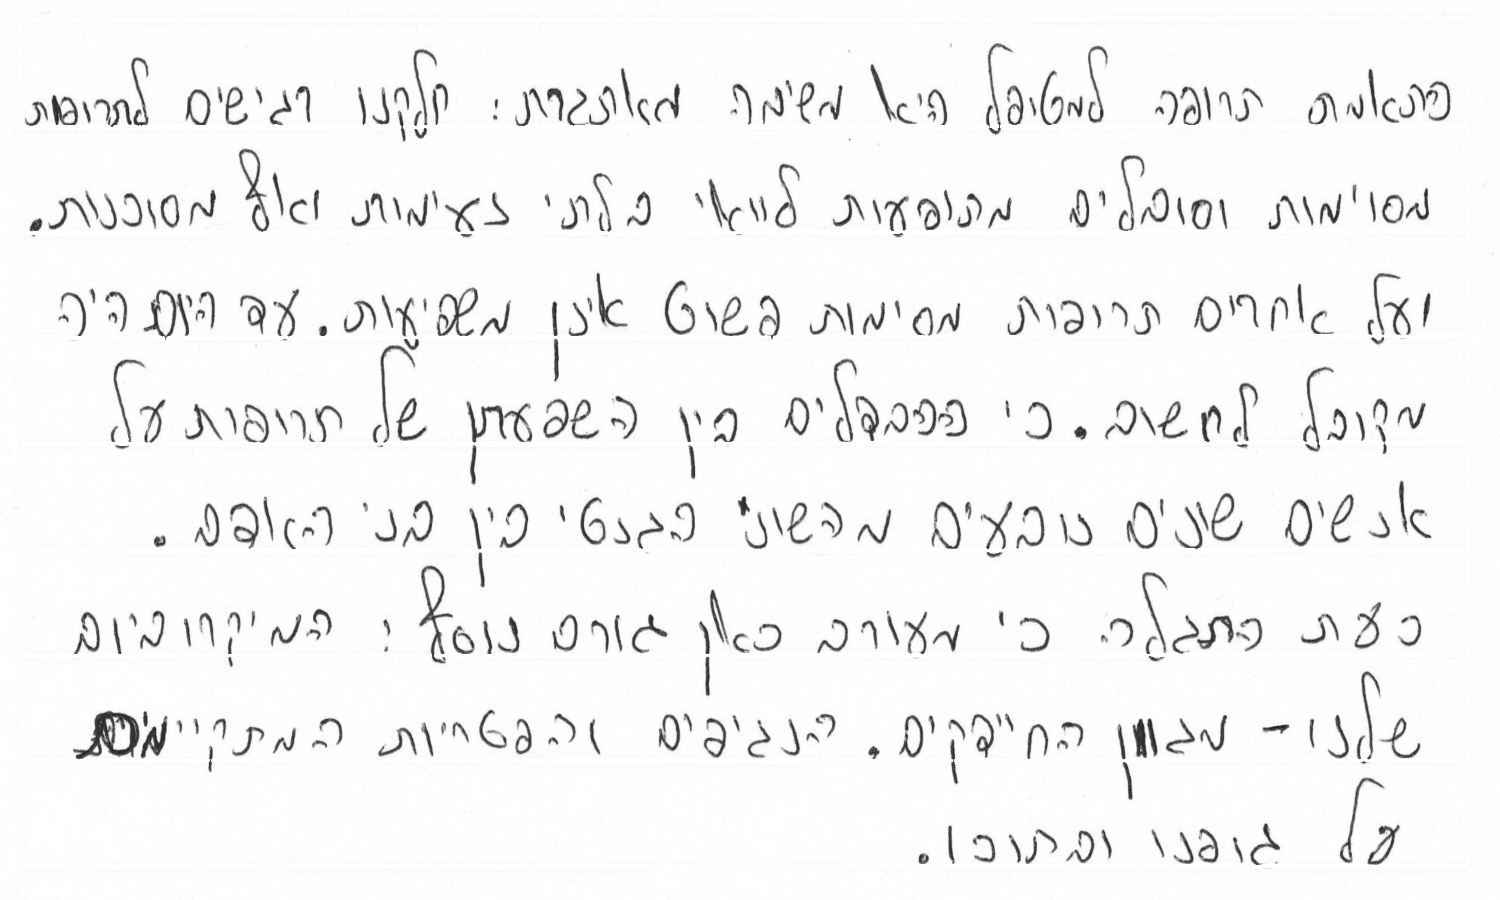 התאמת תרופה למטופל היא משימה מאתגרת: חלקנו רגישים לתרופות
מסוימות וסובלים מתופעות לוואי בלתי נעימות ואף מסוכנות.
ועל אחרים תרופות מסימות פשוט אינן משפיעות. עד היום היה
מקובל לחשוב. כי ההבדלים בין השפעתן של תרופות על
אנשים שונים נובעים מהשוני הגנטי בין בני האדם.
כעת התגלה כי מעורב כאן גורם נוסף: המיקרוביום
שלנו - מגוון החיידקים. הנגיפים והפטריות המתקיימות
על גופנו ובתוכו.